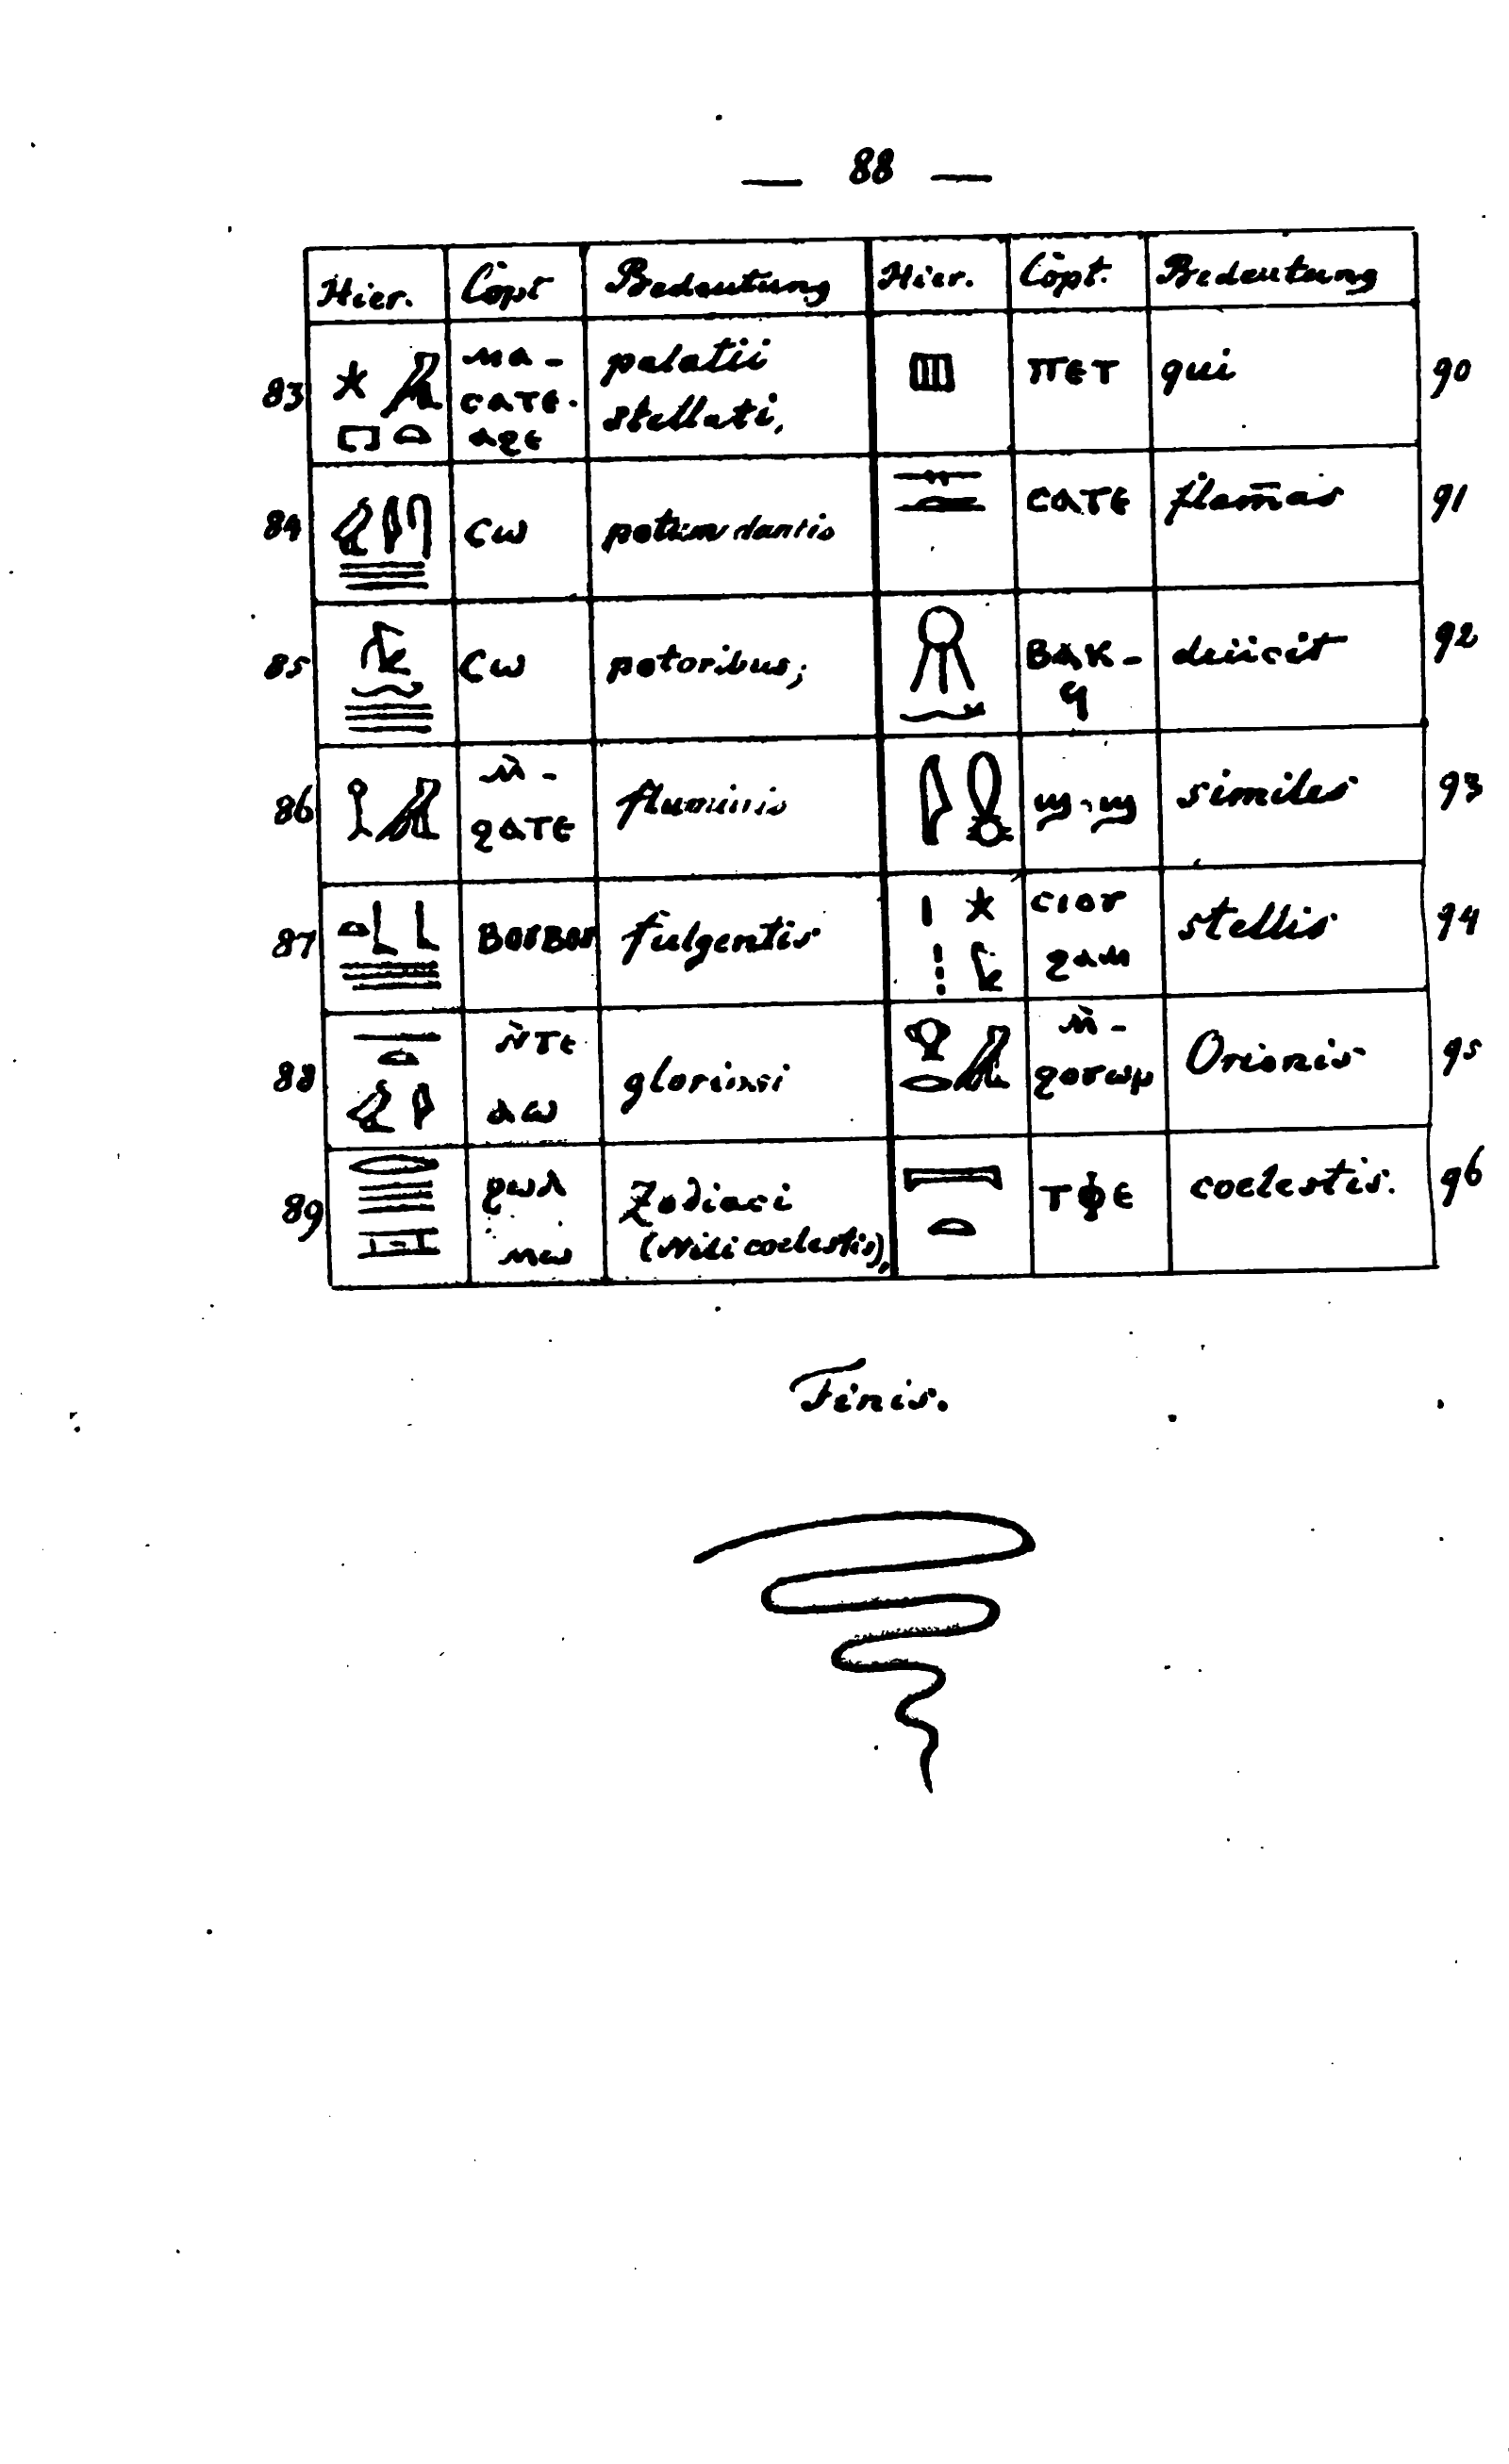 — 88 —
Hier. Copt Bedeutung Hier. Copt. Bedeutung
83 ⲙⲁ-ⲥⲁⲧⲉ·ⲁϩⲉ palatii stellati, ⲡⲉⲧ qui 90
84 ⲥⲱ potum dantis ⲥⲁⲧⲉ flam̄as 91
85 ⲥⲱ potoribus; ⲃⲁⲕ-ϥ deiicit 92
86 ⲙ̀-ϩⲁⲧⲉ fluminis ϣ·ϣ similes 93
87 ⲃⲟⲩⲃⲟⲩ fulgentis ⲥⲓⲟⲩ ϩⲁⲙ stellis 94
88 ⲛ̀ⲧⲉ ⲁⲱ gloriosi ⲙ̀-ϩⲟⲩⲱⲣ Orionis 95
89 ϩⲱⲗ ⲙⲱ Zodiaci (Nili coelestis), ⲧⲫⲉ coelestis. 96
Finis.